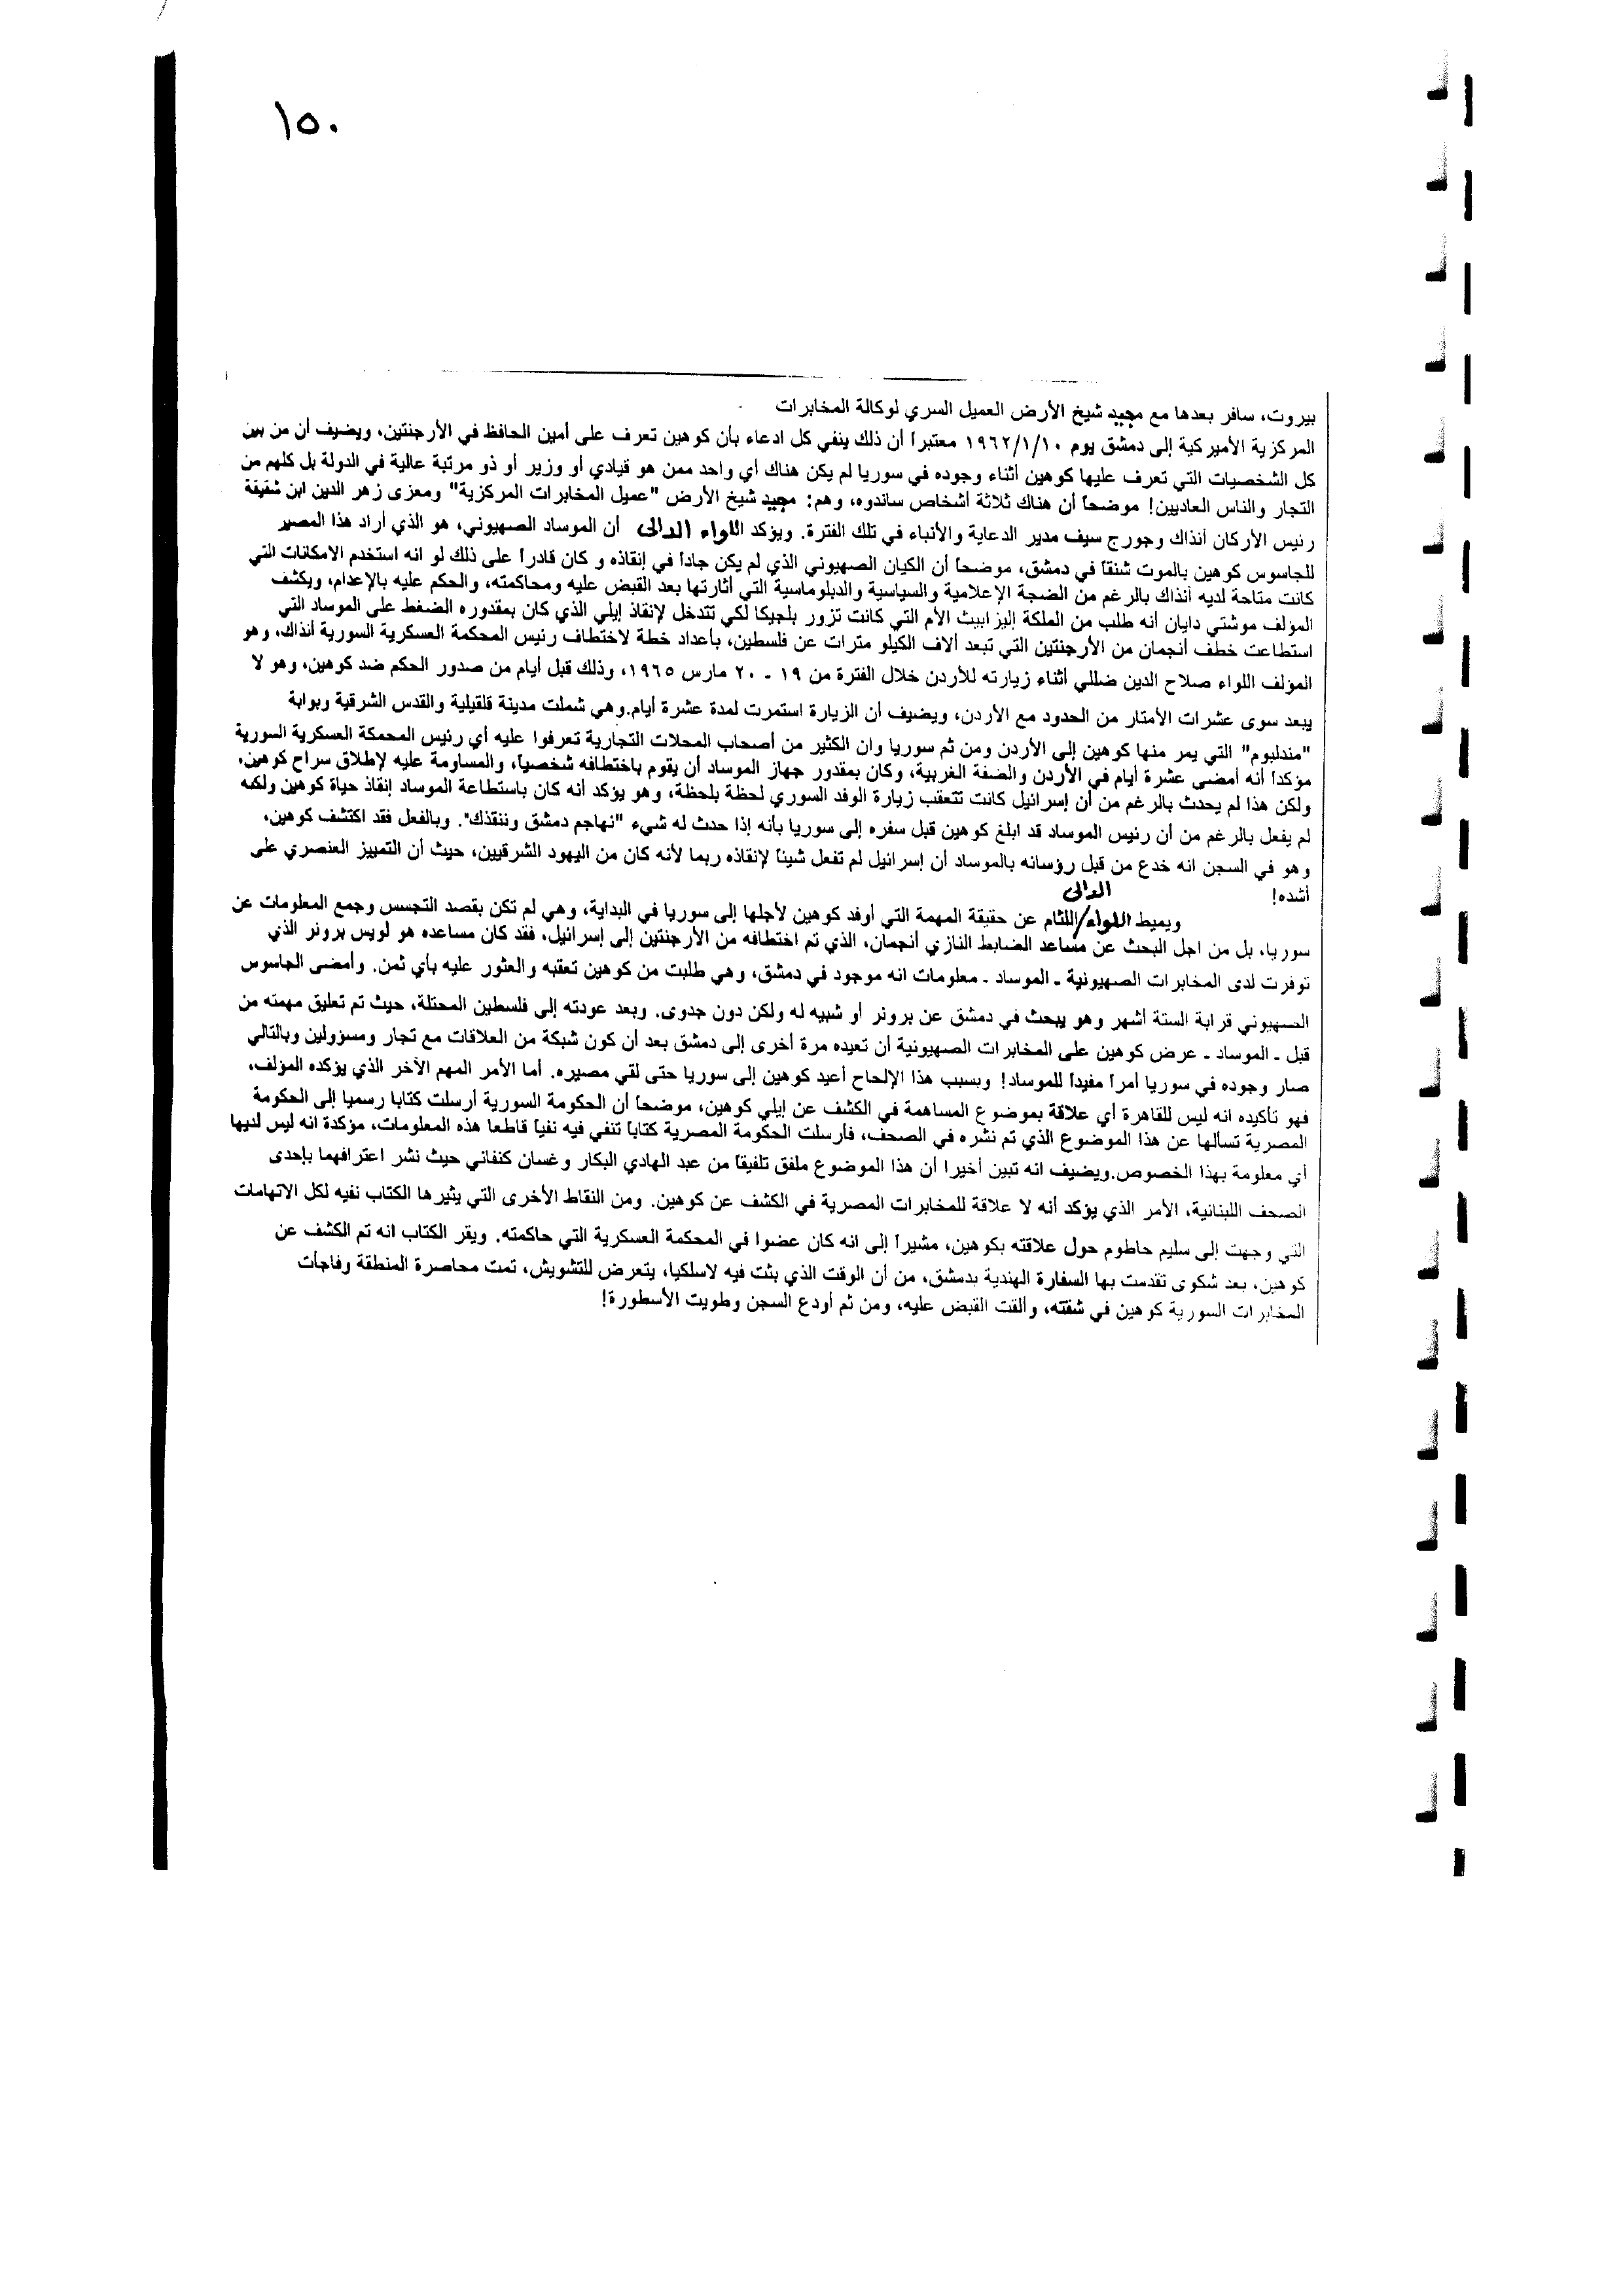 ١٥٠
بيروت، سافر بعدها مع مجيد شيخ الأرض العميل السري لوكالة المخابرات
المركزية الأميركية إلى دمشق يوم ١٩٦٢/١/١٠ معتبراً أن ذلك ينفي كل ادعاء بأن كوهين تعرف على أمين الحافظ في الأرجنتين، ويضيف أن من بين
كل الشخصيات التي تعرف عليها كوهين أثناء وجوده في سوريا لم يكن هناك أي واحد ممن هو قيادي أو وزير أو ذو مرتبة عالية في الدولة بل كلهم من
التجار والناس العاديين! موضحاً أن هناك ثلاثة أشخاص ساندوه، وهم: مجيد شيخ الأرض "عميل المخابرات المركزية" ومعزى زهر الدين ابن شقيقة
رئيس الأركان أنذاك وجورج سيف مدير الدعاية والأنباء في تلك الفترة. ويؤكد اللواء الدالى أن الموساد الصهيوني، هو الذي أراد هذا المصير
للجاسوس كوهين بالموت شنقاً في دمشق، موضحاً أن الكيان الصهيوني الذي لم يكن جاداً في إنقاذه و كان قادراً على ذلك لو انه استخدم الامكانات التي
كانت متاحة لديه أنذاك بالرغم من الضجة الإعلامية والسياسية والدبلوماسية التي أثارتها بعد القبض عليه ومحاكمته، والحكم عليه بالإعدام، ويكشف
المؤلف موشتي دايان أنه طلب من الملكة إليزابيث الأم التي كانت تزور بلجيكا لكي تتدخل لإنقاذ إيلي الذي كان بمقدوره الضغط على الموساد التي
استطاعت خطف أنجمان من الأرجنتين التي تبعد ألاف الكيلو مترات عن فلسطين، بأعداد خطة لاختطاف رئيس المحكمة العسكرية السورية أنذاك، وهو
المؤلف اللواء صلاح الدين ضللي أثناء زيارته للأردن خلال الفترة من ١٩ - ٢٠ مارس ١٩٦٥، وذلك قبل أيام من صدور الحكم ضد كوهين، وهو لا
يبعد سوى عشرات الأمتار من الحدود مع الأردن، ويضيف أن الزيارة استمرت لمدة عشرة أيام.وهي شملت مدينة قلقيلية والقدس الشرقية وبوابة
"مندلبوم" التي يمر منها كوهين إلى الأردن ومن ثم سوريا وان الكثير من أصحاب المحلات التجارية تعرفوا عليه أي رئيس المحمكة العسكرية السورية
مؤكداً أنه أمضى عشرة أيام في الأردن والضفة الغربية، وكان بمقدور جهاز الموساد أن يقوم باختطافه شخصياً، والمساومة عليه لإطلاق سراح كوهين.
ولكن هذا لم يحدث بالرغم من أن إسرائيل كانت تتعقب زيارة الوفد السوري لحظة بلحظة، وهو يؤكد أنه كان باستطاعة الموساد إنقاذ حياة كوهين ولكنه
لم يفعل بالرغم من أن رئيس الموساد قد ابلغ كوهين قبل سفره إلى سوريا بأنه إذا حدث له شيء "نهاجم دمشق وننقذك". وبالفعل فقد اكتشف كوهين،
وهو في السجن انه خدع من قبل رؤسائه بالموساد أن إسرائيل لم تفعل شيئاً لإنقاذه ربما لأنه كان من اليهود الشرقيين، حيث أن التمييز العنصري على
أشده!
الدالى
ويميط اللواء/اللثام عن حقيقة المهمة التي أوفد كوهين لأجلها إلى سوريا في البداية، وهي لم تكن بقصد التجسس وجمع المعلومات عن
سوريا، بل من اجل البحث عن مساعد الضابط النازي أنجمان، الذي تم اختطافه من الأرجنتين إلى إسرائيل، فقد كان مساعده هو لويس برونر الذي
توفرت لدى المخابرات الصهيونية - الموساد - معلومات انه موجود في دمشق، وهي طلبت من كوهين تعقبه والعثور عليه بأي ثمن. وأمضى الجاسوس
الصهيوني قرابة الستة أشهر وهو يبحث في دمشق عن برونر أو شبيه له ولكن دون جدوى. وبعد عودته إلى فلسطين المحتلة، حيث تم تعليق مهمته من
قبل - الموساد - عرض كوهين على المخابرات الصهيونية أن تعيده مرة أخرى إلى دمشق بعد أن كون شبكة من العلاقات مع تجار ومسؤولين وبالتالي
صار وجوده في سوريا أمراً مفيداً للموساد! وبسبب هذا الإلحاح أعيد كوهين إلى سوريا حتى لقي مصيره. أما الأمر المهم الآخر الذي يؤكده المؤلف،
فهو تأكيده انه ليس للقاهرة أي علاقة بموضوع المساهمة في الكشف عن إيلي كوهين، موضحاً أن الحكومة السورية أرسلت كتابا رسميا إلى الحكومة
المصرية تسألها عن هذا الموضوع الذي تم نشره في الصحف، فأرسلت الحكومة المصرية كتاباً تنفي فيه نفياً قاطعا هذه المعلومات، مؤكدة انه ليس لديها
أي معلومة بهذا الخصوص.ويضيف انه تبين أخيرا أن هذا الموضوع ملفق تلفيقاً من عبد الهادي البكار وغسان كنفاني حيث نشر اعترافهما بإحدى
الصحف اللبنانية، الأمر الذي يؤكد أنه لا علاقة للمخابرات المصرية في الكشف عن كوهين. ومن النقاط الأخرى التي يثيرها الكتاب نفيه لكل الاتهامات
التي وجهت إلى سليم حاطوم حول علاقته بكوهين، مشيراً إلى انه كان عضوا في المحكمة العسكرية التي حاكمته. ويقر الكتاب انه تم الكشف عن
كوهين، بعد شكوى تقدمت بها السفارة الهندية بدمشق، من أن الوقت الذي بثت فيه لاسلكيا، يتعرض للتشويش، تمت محاصرة المنطقة وفاجأت
المخابرات السورية كوهين في شقته، وألقت القبض عليه، ومن ثم أودع السجن وطويت الأسطورة!